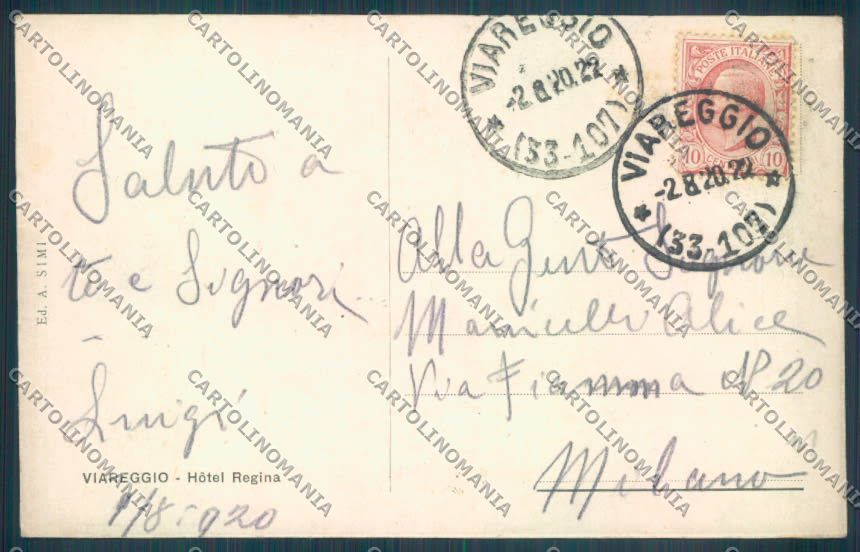 VIAREGGIO
-2.8.20.22
(33-107)
POSTE ITALIANE
10 CENT. 10
VIAREGGIO
-2.8.20.22
(33-107)
Saluto a
te e Signori
Luigi
1/8 1920
Alla Gent. Signora
Alice
Via Fiamma N 20
Milano
Ed. A. SIMI
VIAREGGIO - Hôtel Regina
CARTOLINOMANIA